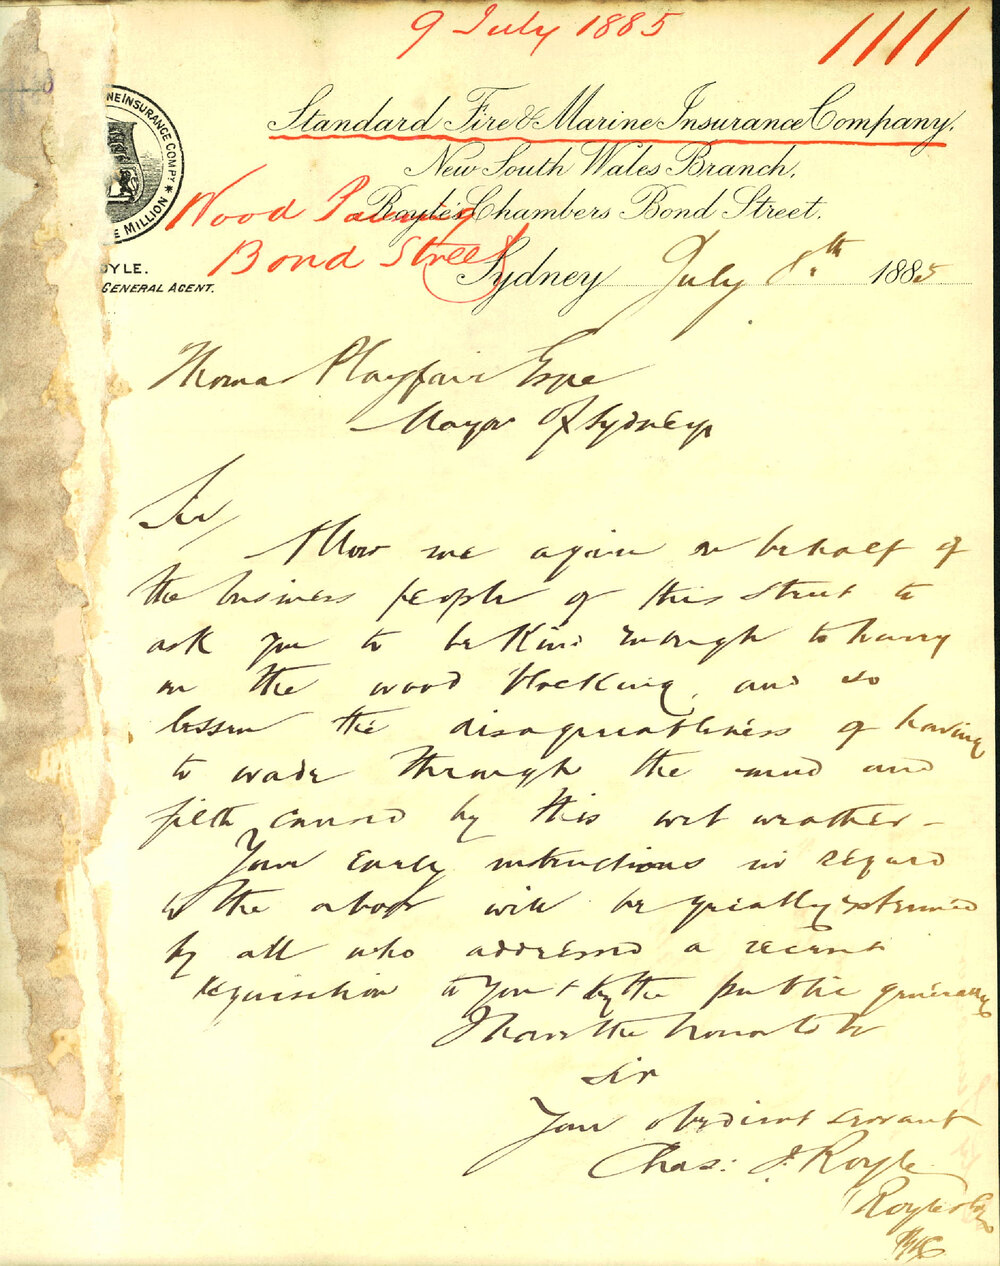 9 July 1885
1111
NE INSURANCE COMPY
E MILLION
Standard Fire & Marine Insurance Company.
New South Wales Branch,
Royle's Chambers Bond Street.
Wood Paving
Bond Street
OYLE.
GENERAL AGENT.
Sydney July 8th 1885
Thomas Playfair Esqe
Mayor of Sydney
Sir,
Allow me again on behalf of
the business people of this Street to
ask you to be kind enough to hurry
on the wood blocking, and so
lessen the disagreeableness of having
to wade through the mud and
filth caused by this wet weather -
Your early instructions in regard
to the above will be greatly esteemed
by all who addressed a recent
requisition to you & by the public generally
I have the honor to be
Sir
Your obedient servant
Chas: J. Royle